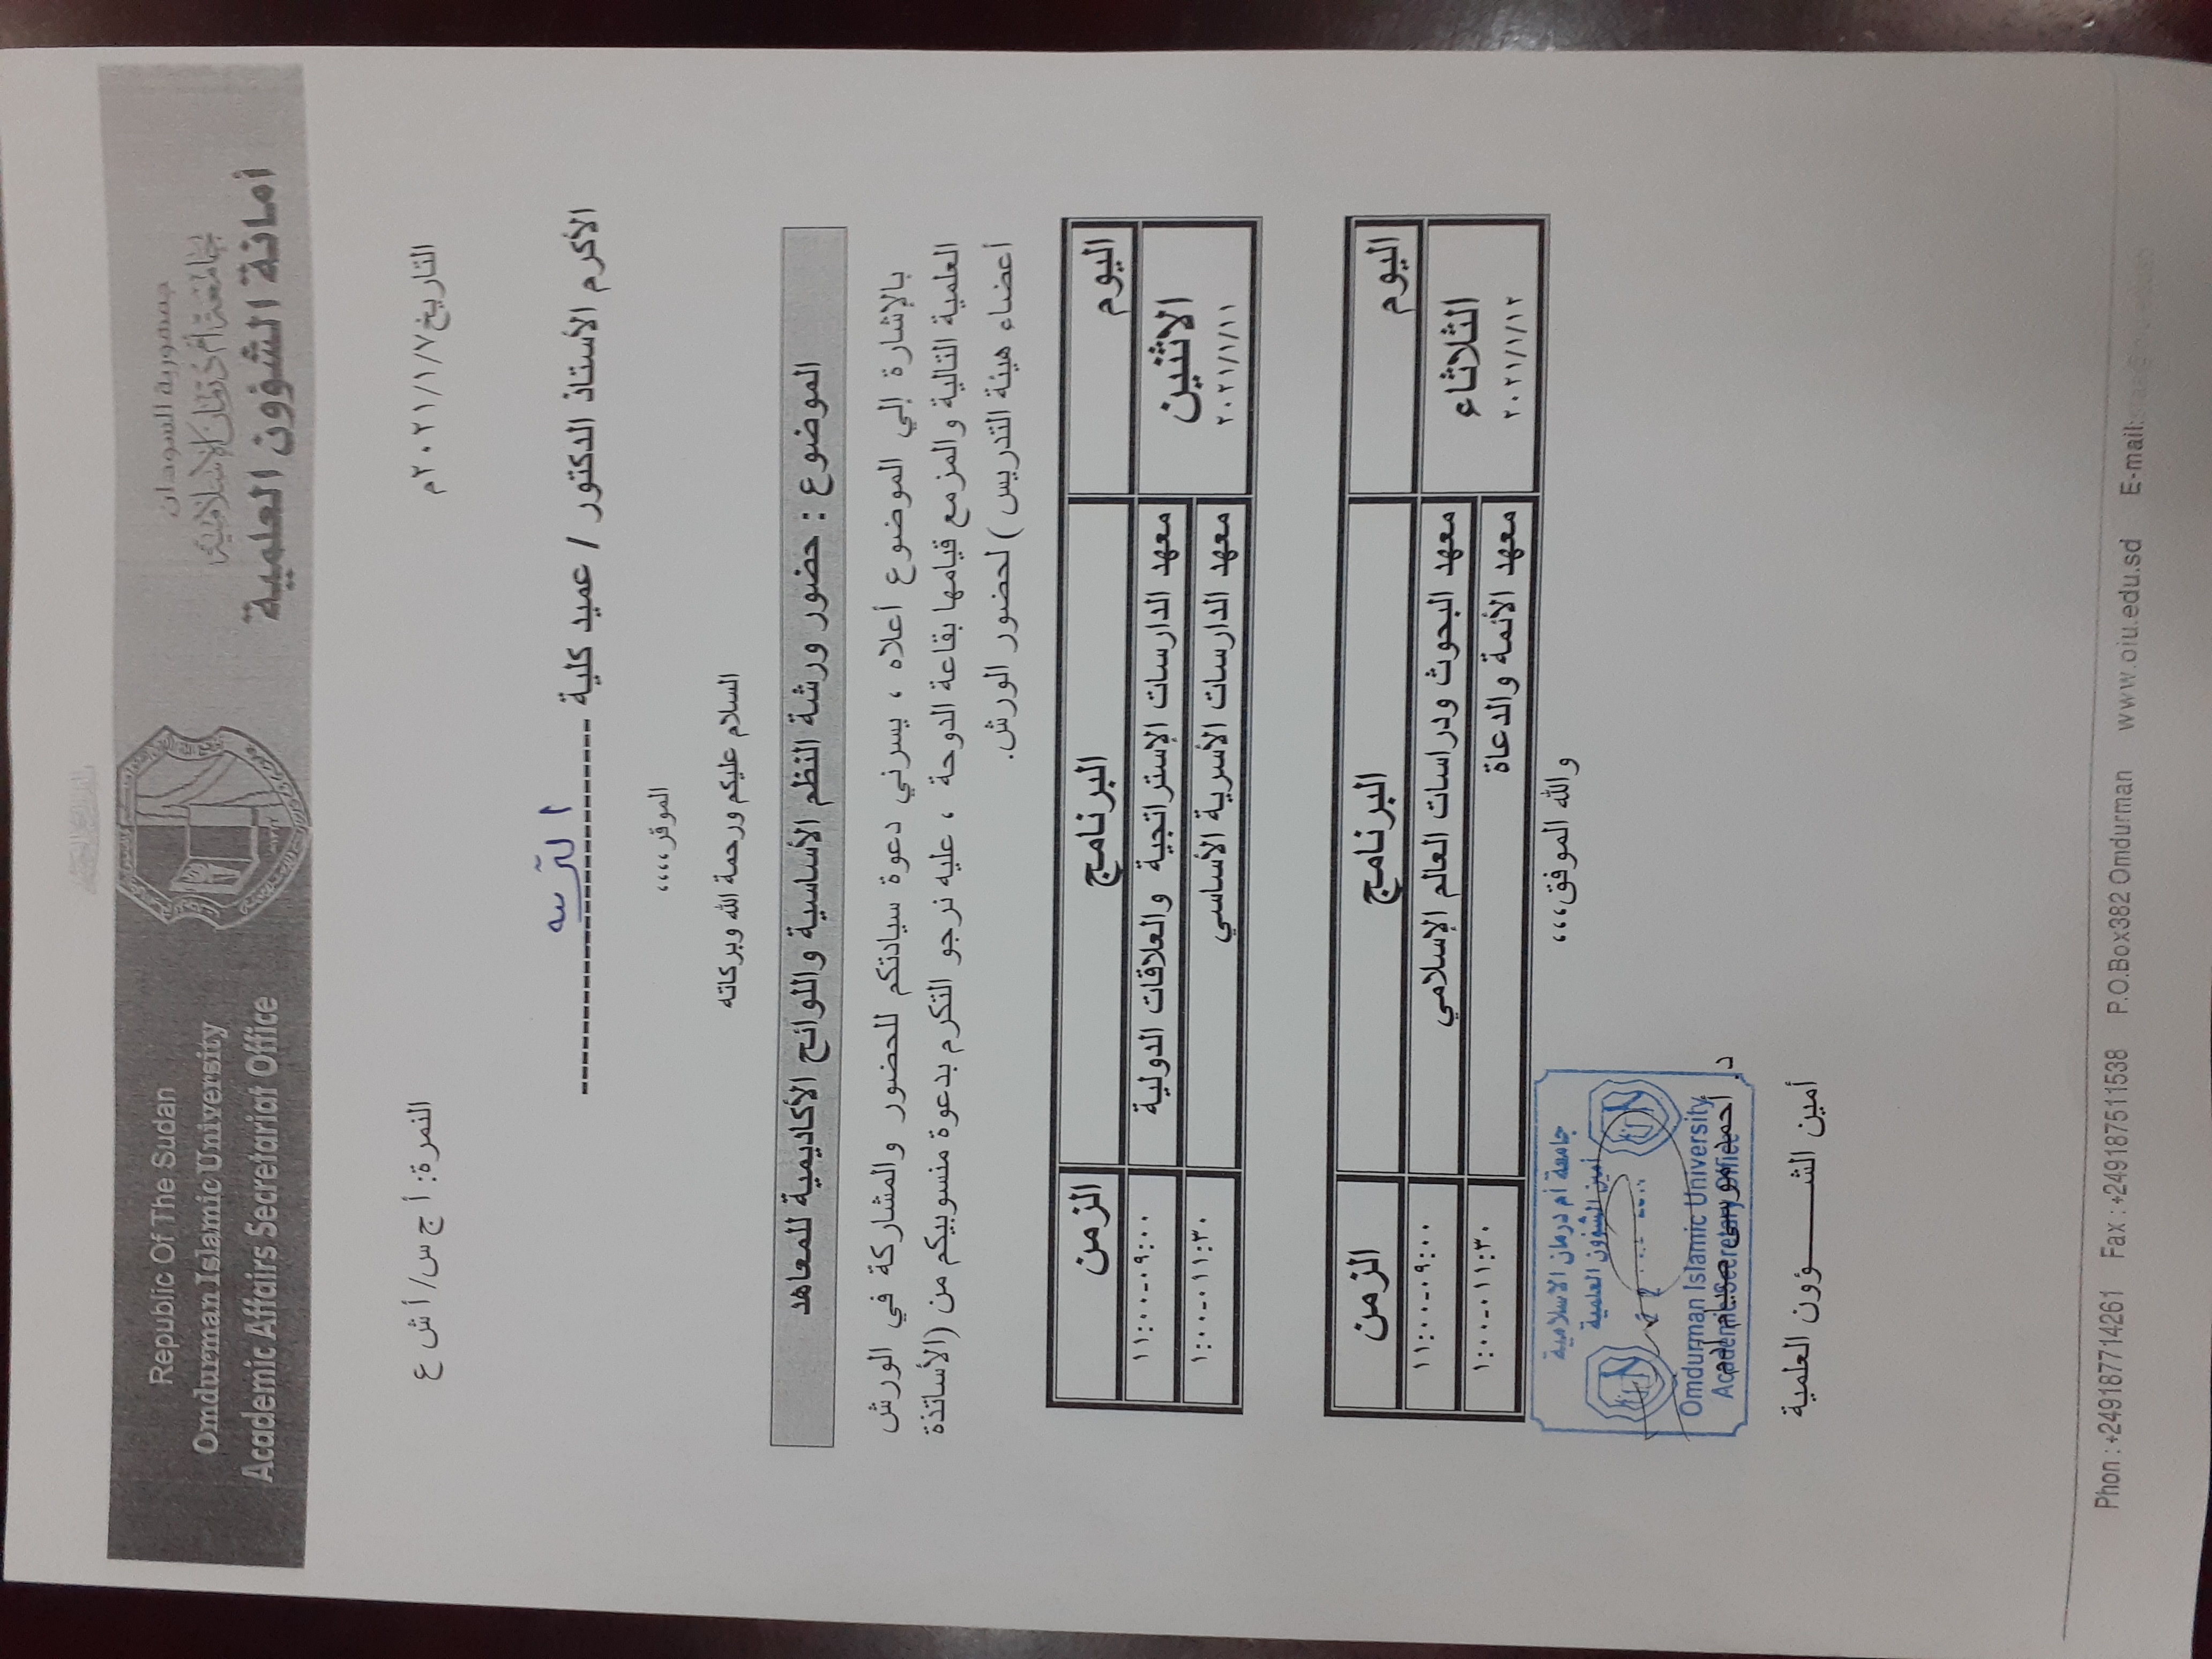 جمهورية السودان
جامعة أم درمان الإسلامية
أمانة الشؤون العلمية
Republic Of The Sudan
Omdurman Islamic University
Academic Affairs Secretariat Office
التاريخ ٢٠٢١/١/٧م
النمرة: أ ج س/ أ ش ع
الأكرم الأستاذ الدكتور / عميد كلية ----------
الموقر،،،،
السلام عليكم ورحمة الله وبركاته
الموضوع : حضور ورشة النظم الأساسية واللوائح الأكاديمية للمعاهد
بالإشارة إلي الموضوع أعلاه ، يسرني دعوة سيادتكم للحضور والمشاركة في الورش
العلمية التالية والمزمع قيامها بقاعة الدوحة ، عليه نرجو التكرم بدعوة منسوبيكم من (الأساتذة
أعضاء هيئة التدريس ) لحضور الورش.
اليوم البرنامج الزمن
الاثنين معهد الدارسات الإستراتجية والعلاقات الدولية ٠٩:٠٠-١١:٠٠
٢٠٢١/١/١١ معهد الدارسات الأسرية الأساسي ١١:٣٠-٠١:٠٠
اليوم البرنامج الزمن
الثلاثاء معهد البحوث ودراسات العالم الإسلامي ٠٩:٠٠-١١:٠٠
٢٠٢١/١/١٢ معهد الأئمة والدعاة ١١:٣٠-٠١:٠٠
والله الموفق،،،،
جامعة أم درمان الاسلامية
أمين الشؤون العلمية
Omduruman Islamic University
Academic Secretary Office
د. أحمد
أمين الشـــــــؤون العلمية
Phon : +249187714261 Fax : +249187511538 P.O.Box382 Omdurman www.oiu.edu.sd E-mail: